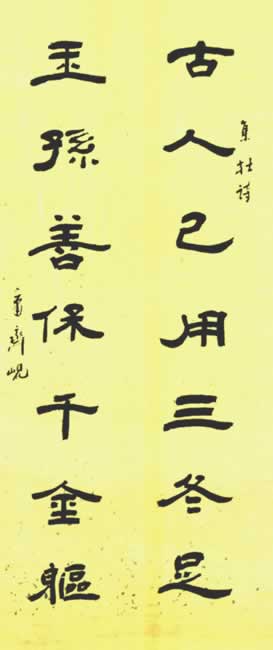 古人已用三冬足
集杜詩
王孫善保千金軀